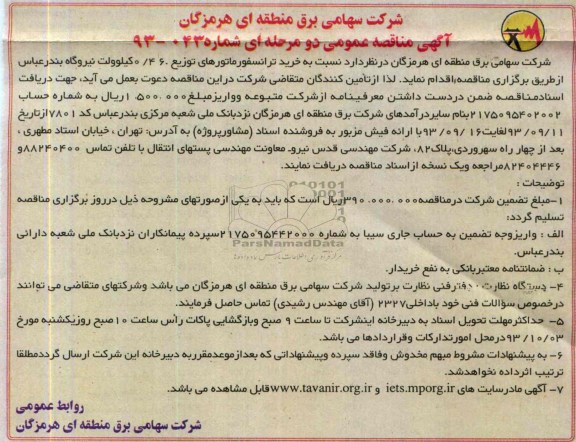 شرکت سهامی برق منطقه ای هرمزگان
آگهی مناقصه عمومی دو مرحله ای شماره ۰۴۳-۹۳
شرکت سهامی برق منطقه ای هرمزگان درنظردارد نسبت به خرید ترانسفورماتورهای توزیع ۰/۴ ۶۰کیلوولت نیروگاه بندرعباس
ازطریق برگزاری مناقصه،اقدام نماید. لذا ازتأمین کنندگان متقاضی شرکت دراین مناقصه دعوت بعمل می آید، جهت دریافت
اسنادمناقصه ضمن دردست داشتن معرفینامه ازشرکت متبوعه وواریزمبلغ۱.۵۰۰.۰۰۰ریال به شماره حساب
۲۱۷۵۰۹۵۴۰۲۰۰۲بنام سایردرآمدهای شرکت برق منطقه ای هرمزگان نزدبانک ملی شعبه مرکزی بندرعباس کد۷۸۰۱ ازتاریخ
۹۳/۰۹/۱۱لغایت۹۳/۰۹/۱۶با ارائه فیش مزبور به فروشنده اسناد (مشاورپروژه) به آدرس: تهران، خیابان استاد مطهری ،
بعد از چهار راه سهروردی،پلاک۸۲، شرکت مهندسی قدس نیرو_ معاونت مهندسی پستهای انتقال با تلفن تماس ۸۸۲۴۰۴۰۰و
۸۲۴۰۴۴۴۶مراجعه ویک نسخه ازاسناد مناقصه دریافت نمایند.
توضیحات :
۱-مبلغ تضمین شرکت درمناقصه۳۹۰.۰۰۰.۰۰۰ریال است که باید به یکی ازصورتهای مشروحه ذیل درروز برگزاری مناقصه
تسلیم گردد:
الف : واریزوجه تضمین به حساب جاری سیبا به شماره ۲۱۷۵۰۹۵۴۴۲۰۰۰سپرده پیمانکاران نزدبانک ملی شعبه دارائی
بندرعباس.
ب : ضمانتنامه معتبربانکی به نفع خریدار.
۴- دستگاه نظارت : دفترفنی نظارت برتولید شرکت سهامی برق منطقه ای هرمزگان می باشد وشرکتهای متقاضی می توانند
درخصوص سؤالات فنی خود باداخلی۲۳۲۷ (آقای مهندس رشیدی) تماس حاصل فرمایند.
۵- حداکثرمهلت تحویل اسناد به دبیرخانه اینشرکت تا ساعت ۹ صبح وبازگشایی پاکات رأس ساعت ۱۰صبح روزیکشنبه مورخ
۹۳/۱۰/۰۳درمحل امورتدارکات وقراردادها می باشد.
۶- به پیشنهادات مشروط مبهم مخدوش وفاقد سپرده وپیشنهاداتی که بعدازموعدمقرربه دبیرخانه این شرکت ارسال گرددمطلقا
ترتیب اثرداده نخواهدشد.
۷- آگهی مادرسایت های iets.mporg.ir و www.tavanir.org.ir قابل مشاهده می باشد.
روابط عمومی
شرکت سهامی برق منطقه ای هرمزگان
ParsNamadData